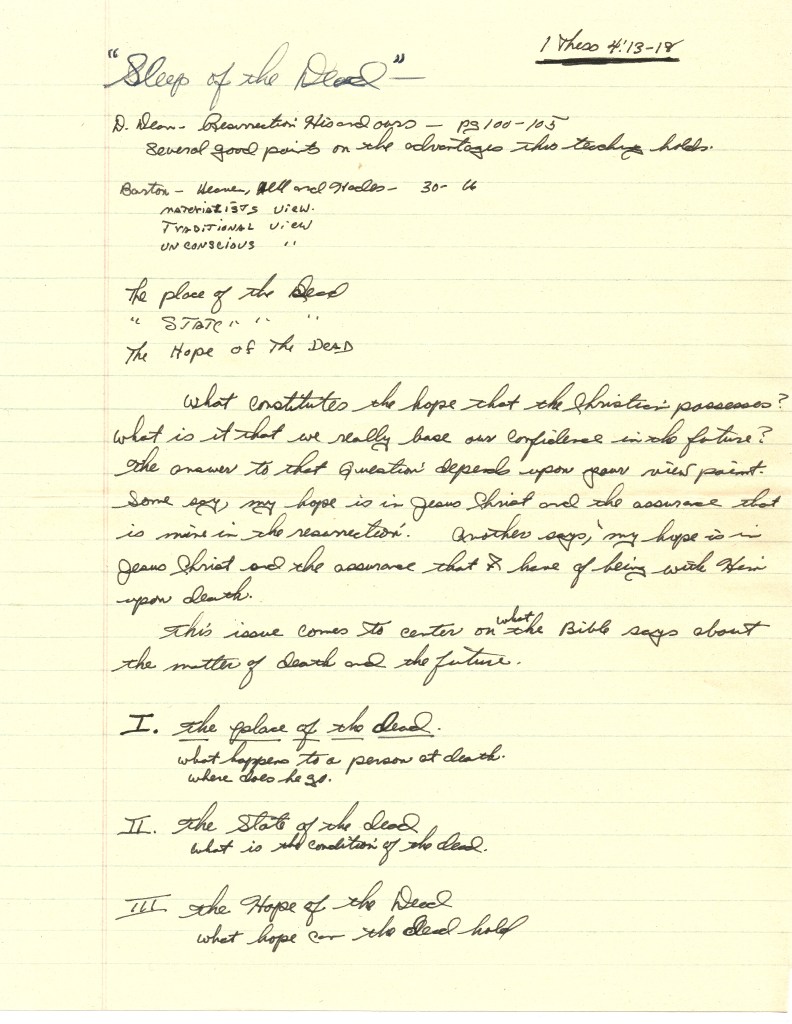 1 Thess 4:13-18
"Sleep of the Dead" —
D. Dean - Resurrection His and ours - pg 100-105
Several good points on the advantages this teaching holds.
Baston - Heaven, Hell and Hades - 30-
MATERIALISTS VIEW.
TRADITIONAL VIEW
UNCONSCIOUS "
The place of the Dead
" STATE " " "
The Hope of The DEAD
What constitutes the hope that the Christian possesses?
What is it that we really base our confidence in the future?
The answer to that Question depends upon your view point.
Some say, my hope is in Jesus Christ and the assurance that
is mine in the resurrection. Another says, 'my hope is in
Jesus Christ and the assurance that I have of being with Him
upon death.
This issue comes to center on what the Bible says about
the matter of death and the future.
I. the place of the dead.
what happens to a person at death.
where does he go.
II. the State of the dead
what is the condition of the dead.
III the Hope of the Dead
what hope can the dead hold